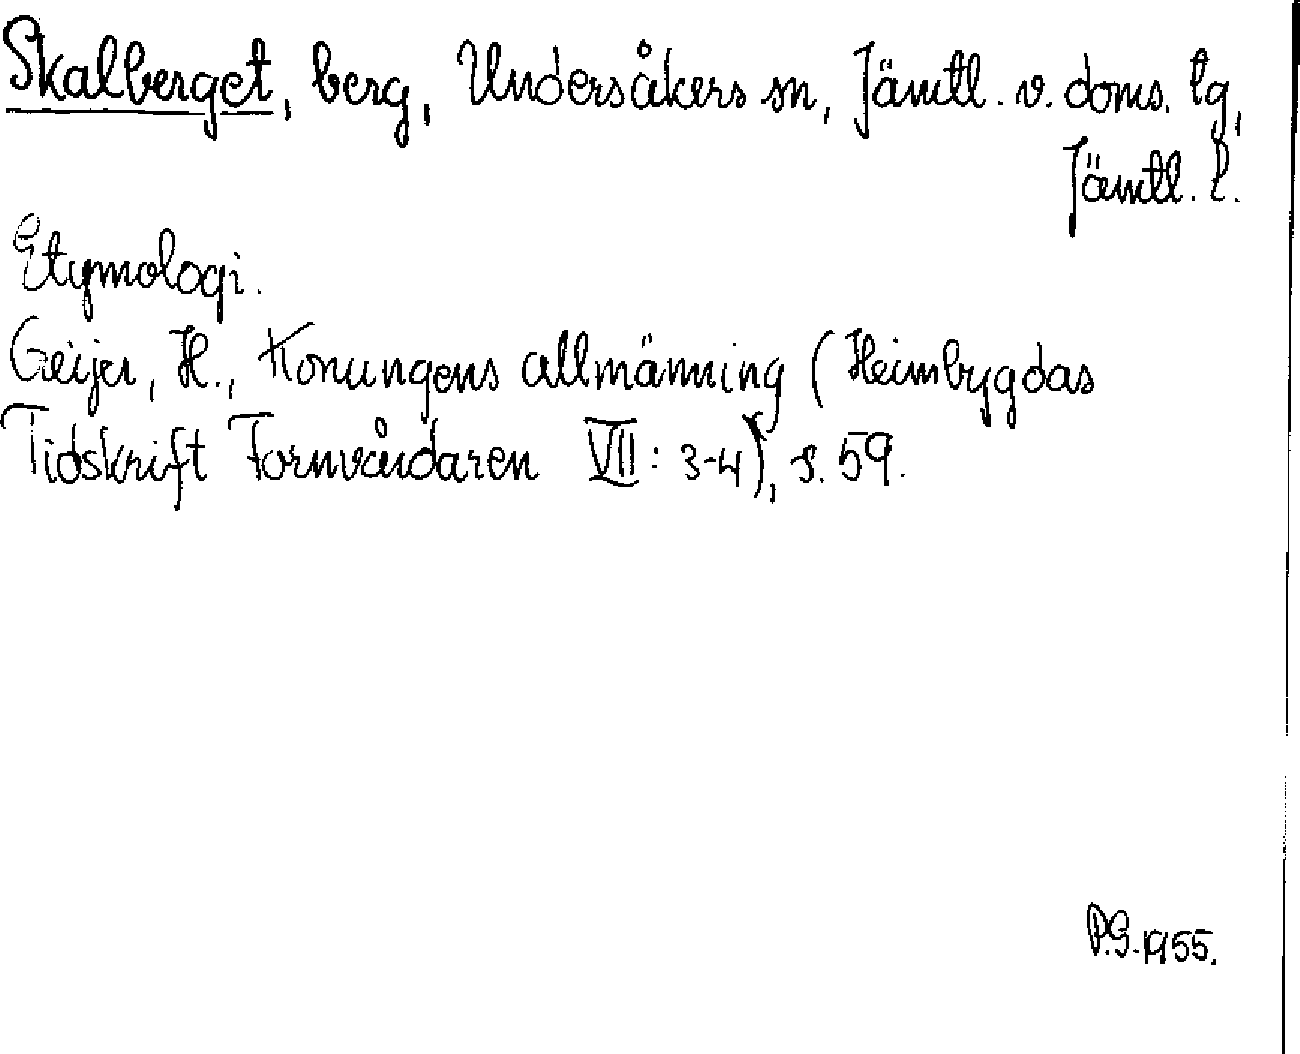 Skalberget, berg, Undersåkers sn, Jämtl. v. doms. tg,
Jämtl. l.
Etymologi.
Geijer, H., Konungens allmänning (Heimbygdas
Tidskrift Fornvårdaren VII: 3-4), s. 59.
P.G. 1955.